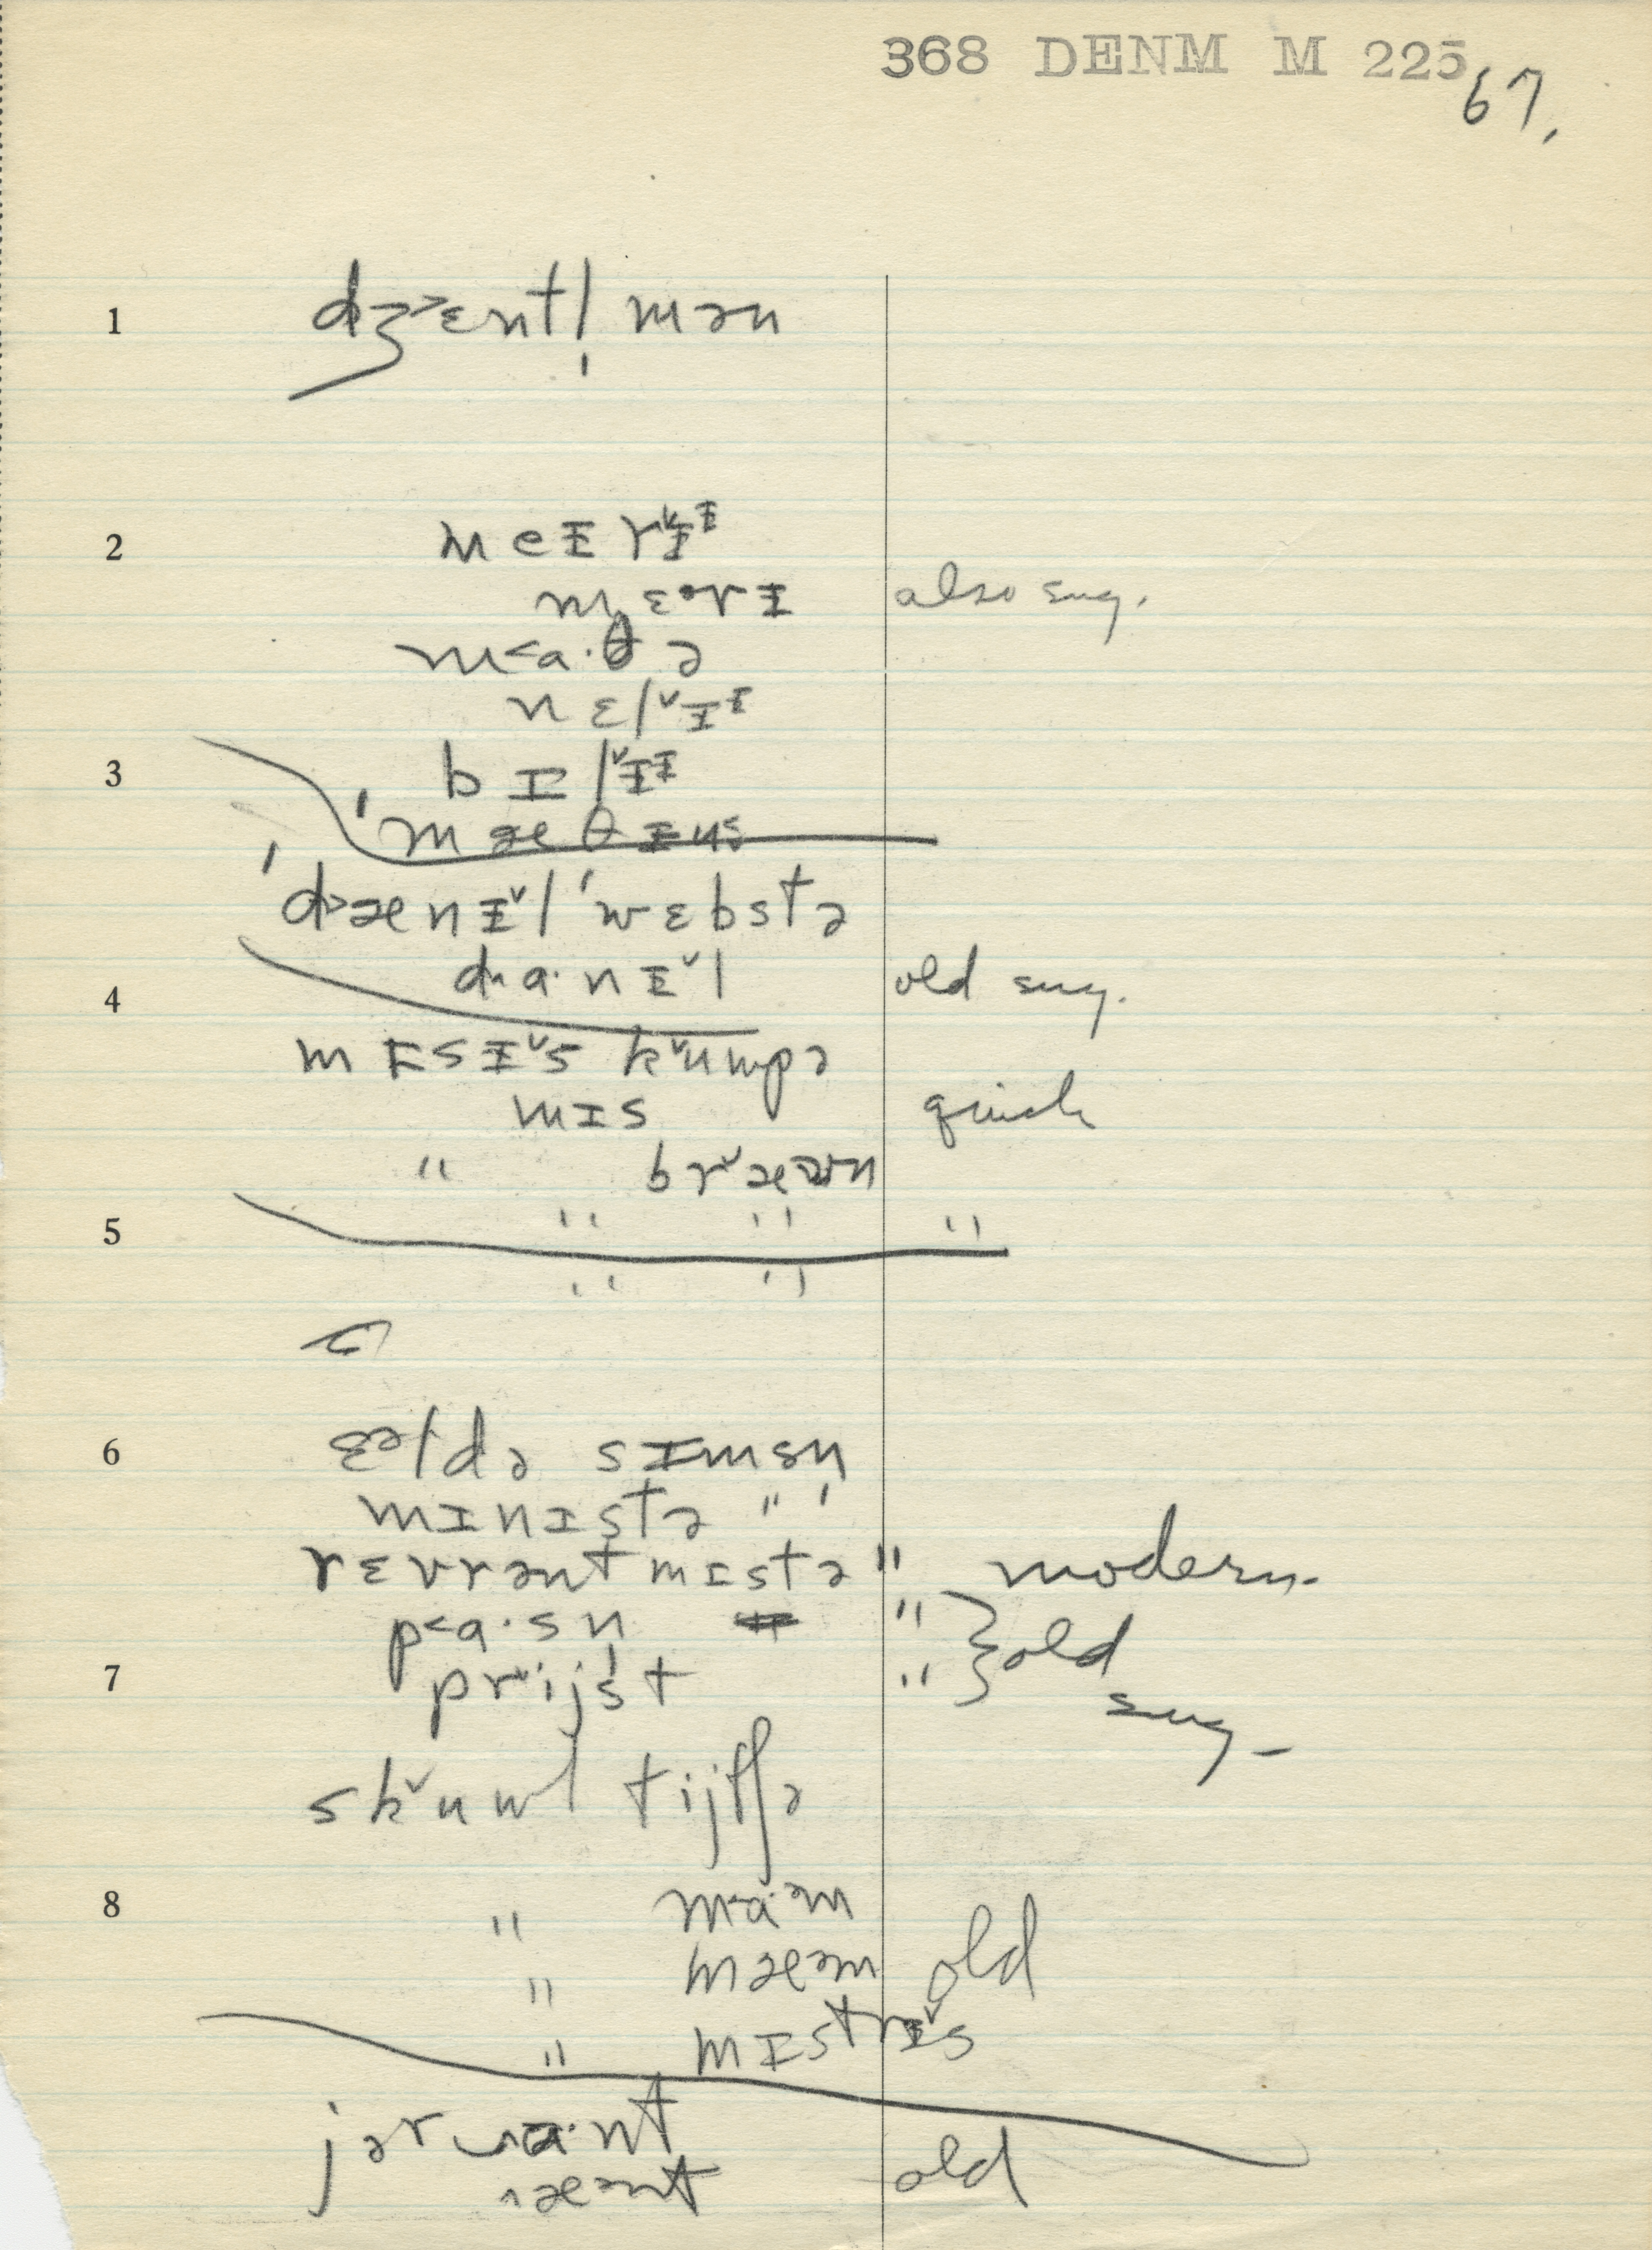 368 DENM M 225
67.
1 dʒ˃ɛntl̩ mən
2 meɪ rᵛɪᶦ
mɛᵊrɪ also sug.
m˂a·θə
nɛlᵛɪᶦ
3 bɪlᵛɪᶦ
ˈmæθɪus
ˈd˃ænɪᵛl ˈwɛbstə
4 da·nɪᵛl old sug.
mɪsɪᵛs kᵛuwpə
mɪs quick
" brᵛæʊn
5 " " "
" "
6 ɛəldə sɪmsn
mɪnɪstə " "
rɛvrənt mɪstə " modern
p˂a·sn "
7 prᵛijst " } old sug.
skᵛuwl tijtʃə
8 " ma·əm
" mæəm old
" mɪstrɪᵛs
jər a·nt
æənt old